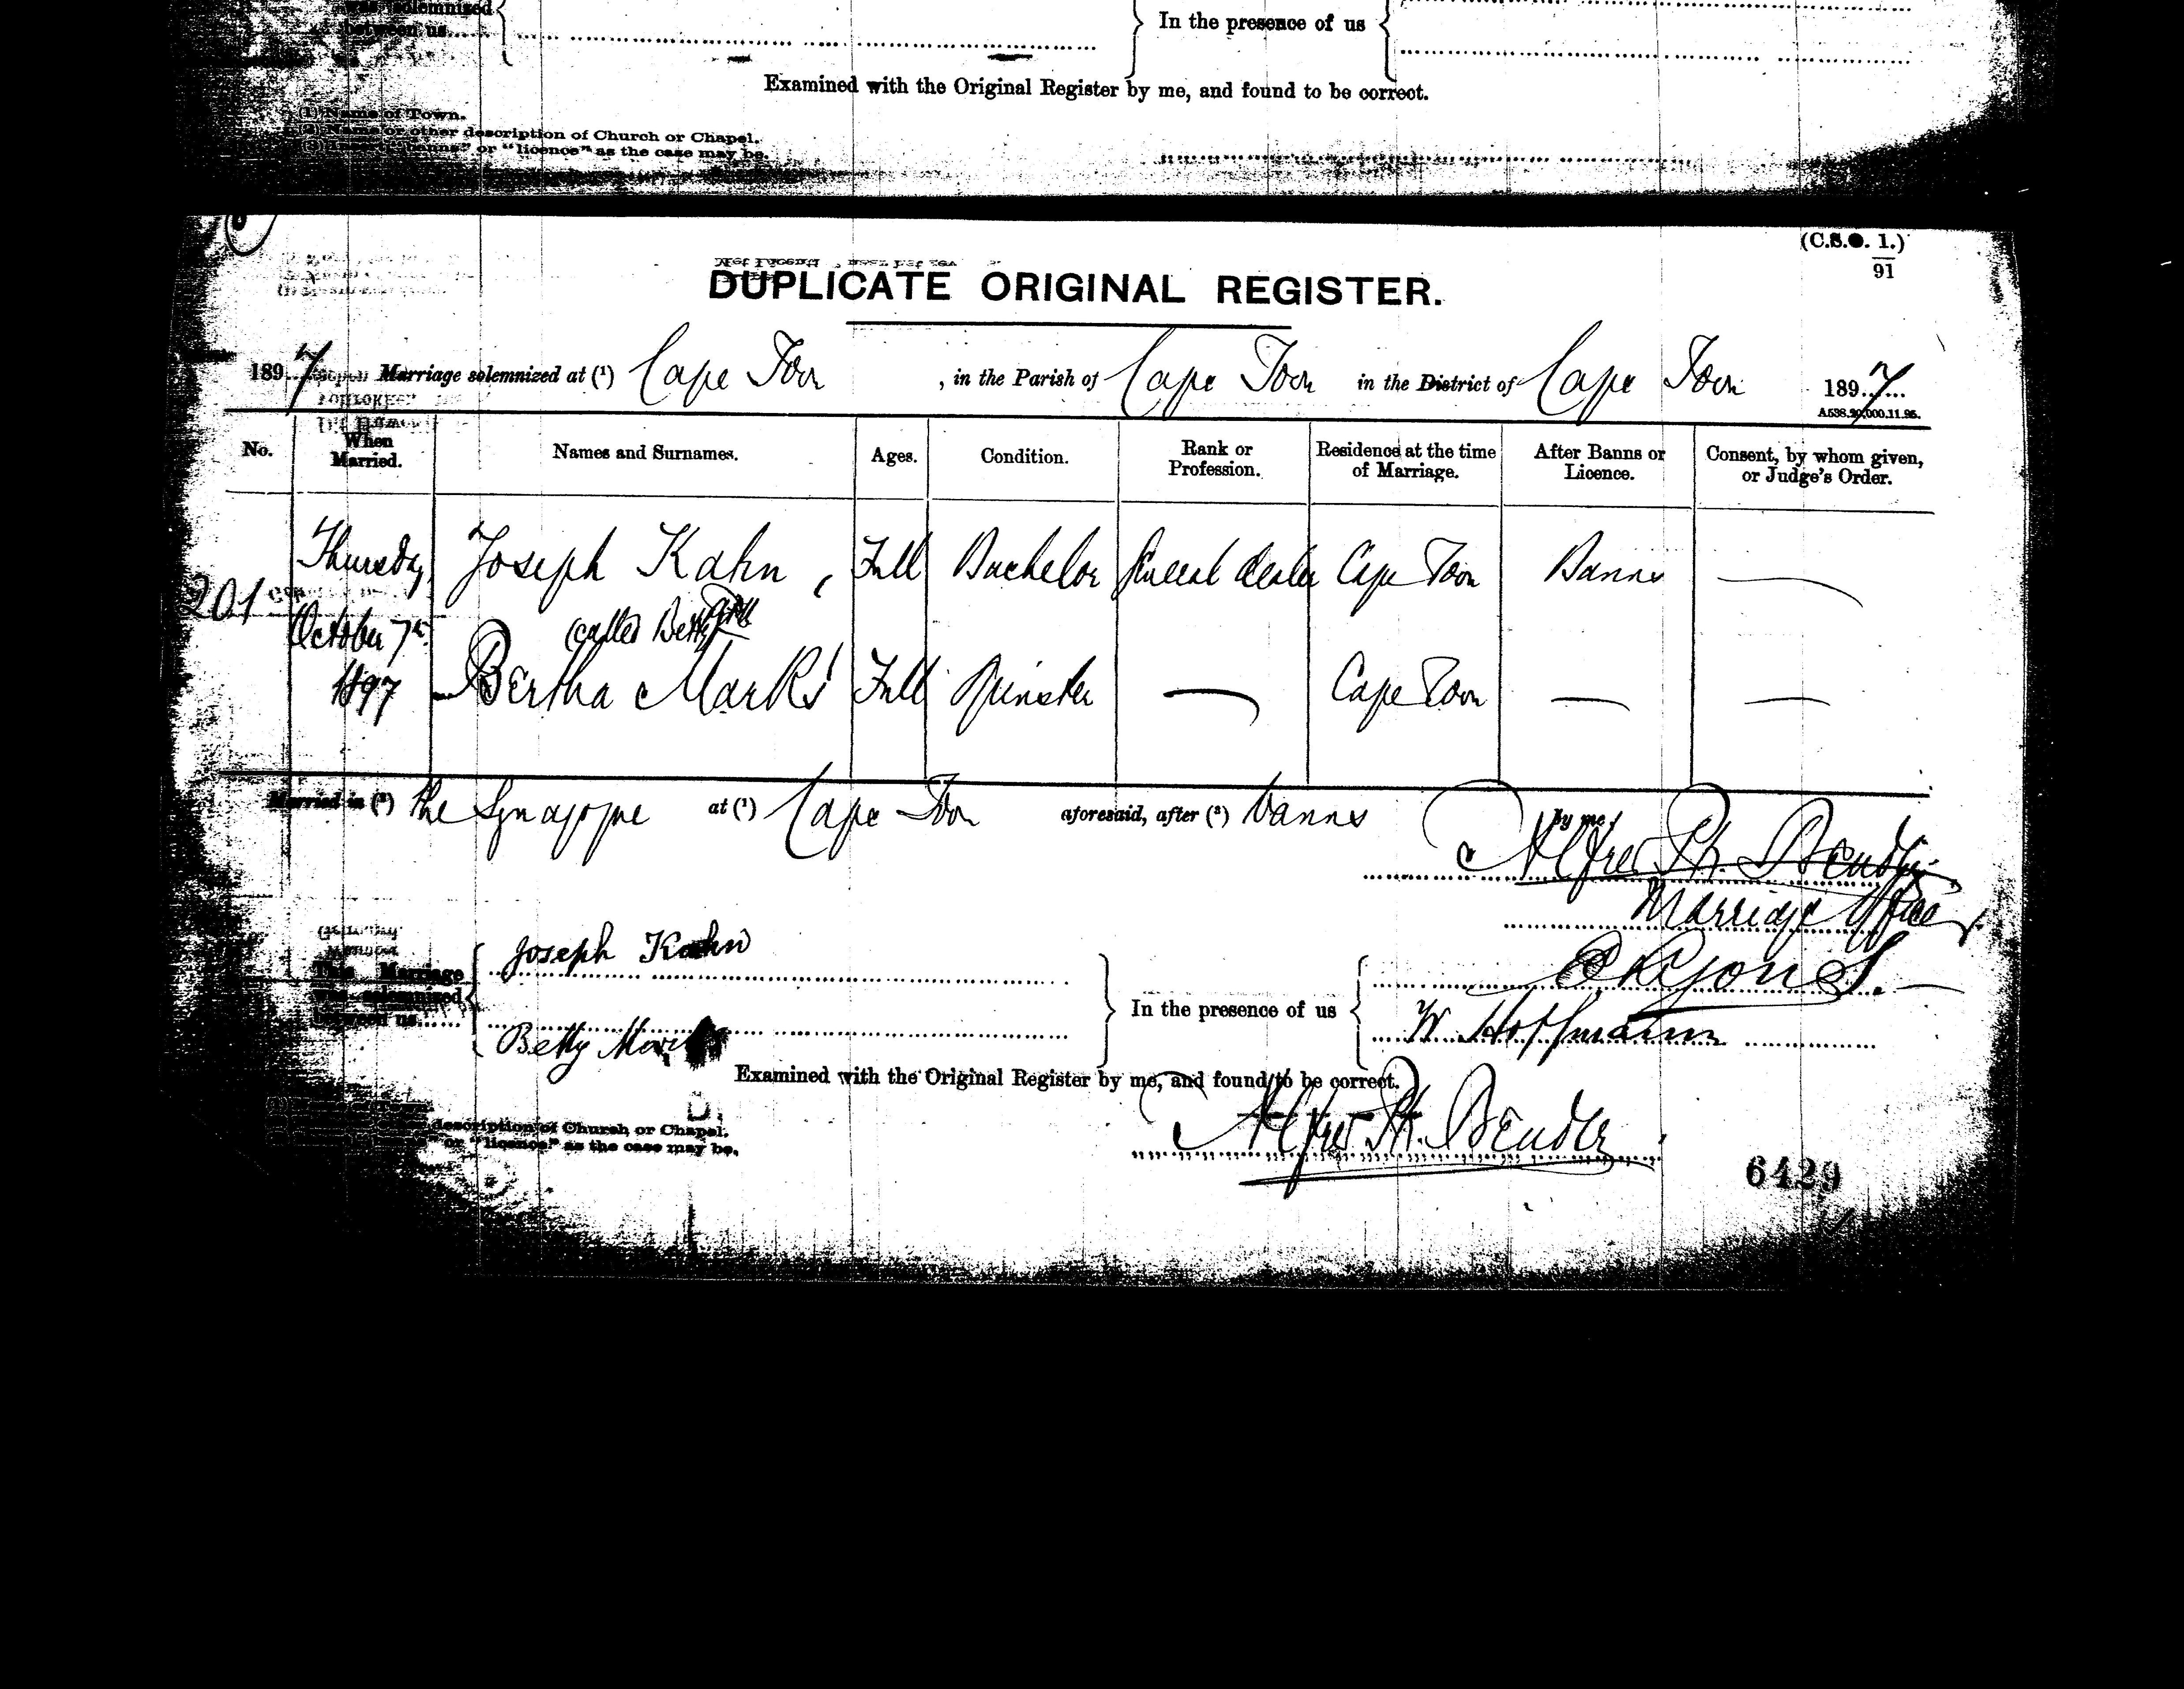 was solemnized
between us......
In the presence of us
Examined with the Original Register by me, and found to be correct.
(1) Name of Town.
(2) Name or other description of Church or Chapel.
or "licence" as the case may be.
(C.S.O. 1.)
91
DUPLICATE ORIGINAL REGISTER.
1897 Marriage solemnized at (1) Cape Town, in the Parish of Cape Town in the District of Cape Town 1897
A538.20,000.11.95.
No. When Married. Names and Surnames. Ages. Condition. Rank or Profession. Residence at the time of Marriage. After Banns or Licence. Consent, by whom given, or Judge's Order.
201 Thursday, October 7th 1897
Joseph Kahn, Full Bachelor General dealer Cape Town Banns —
(called Betty)
Bertha Marks Full Spinster — Cape Town — —
Married in (2) the Synagogue at (1) Cape Town aforesaid, after (3) banns by me,
Alfred P. Bender
Marriage Officer
This Marriage was solemnized between us......
Joseph Kahn
Betty Marks
In the presence of us
W. Hoffmann
Examined with the Original Register by me, and found to be correct.
Alfred P. Bender
description of Church or Chapel.
or "licence" as the case may be.
6429